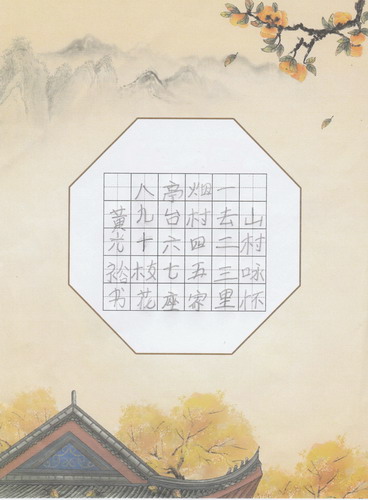 山村咏怀
一去二三里
烟村四五家
亭台六七座
八九十枝花
黄光书